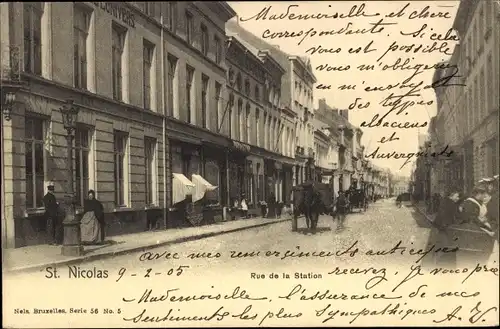 Mademoiselle et chère
correspondante. Si
cela vous est possible
vous m'obligerez
en m'envoyant
des types
alsaciens et
Auvergnats
avec mes remerciements anticipés
St. Nicolas 9-2-05 Rue de la Station
recevez, je vous prie
Mademoiselle, l'assurance de mes
sentiments les plus sympathiques
Nels, Bruxelles, Serie 56 No. 5